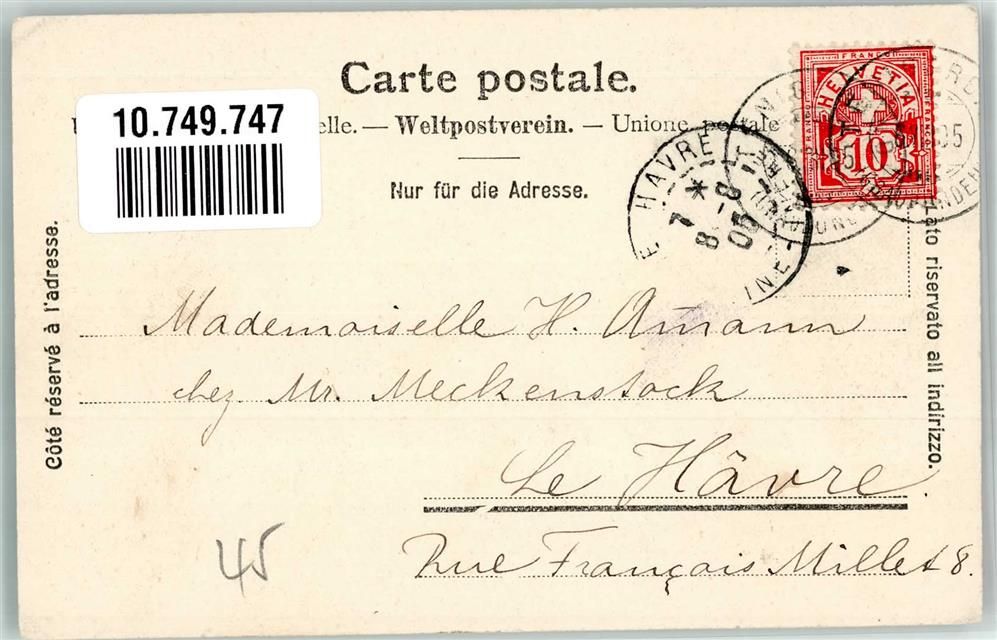 Carte postale.
elle. — Weltpostverein. — Unione postale
Nur für die Adresse.
10.749.747
FRANCO
HELVETIA
FRANCO
FRANCO
10
HAVRE
7 *
8 - 8
05
INE
Côté réservé à l'adresse.
Lato riservato all indirizzo.
Mademoiselle H. Amann
chez Mr. Meckenstock
Le Hâvre.
Rue François Millet 8.
45